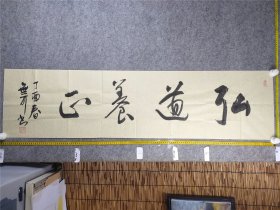 弘道養正
丁酉春